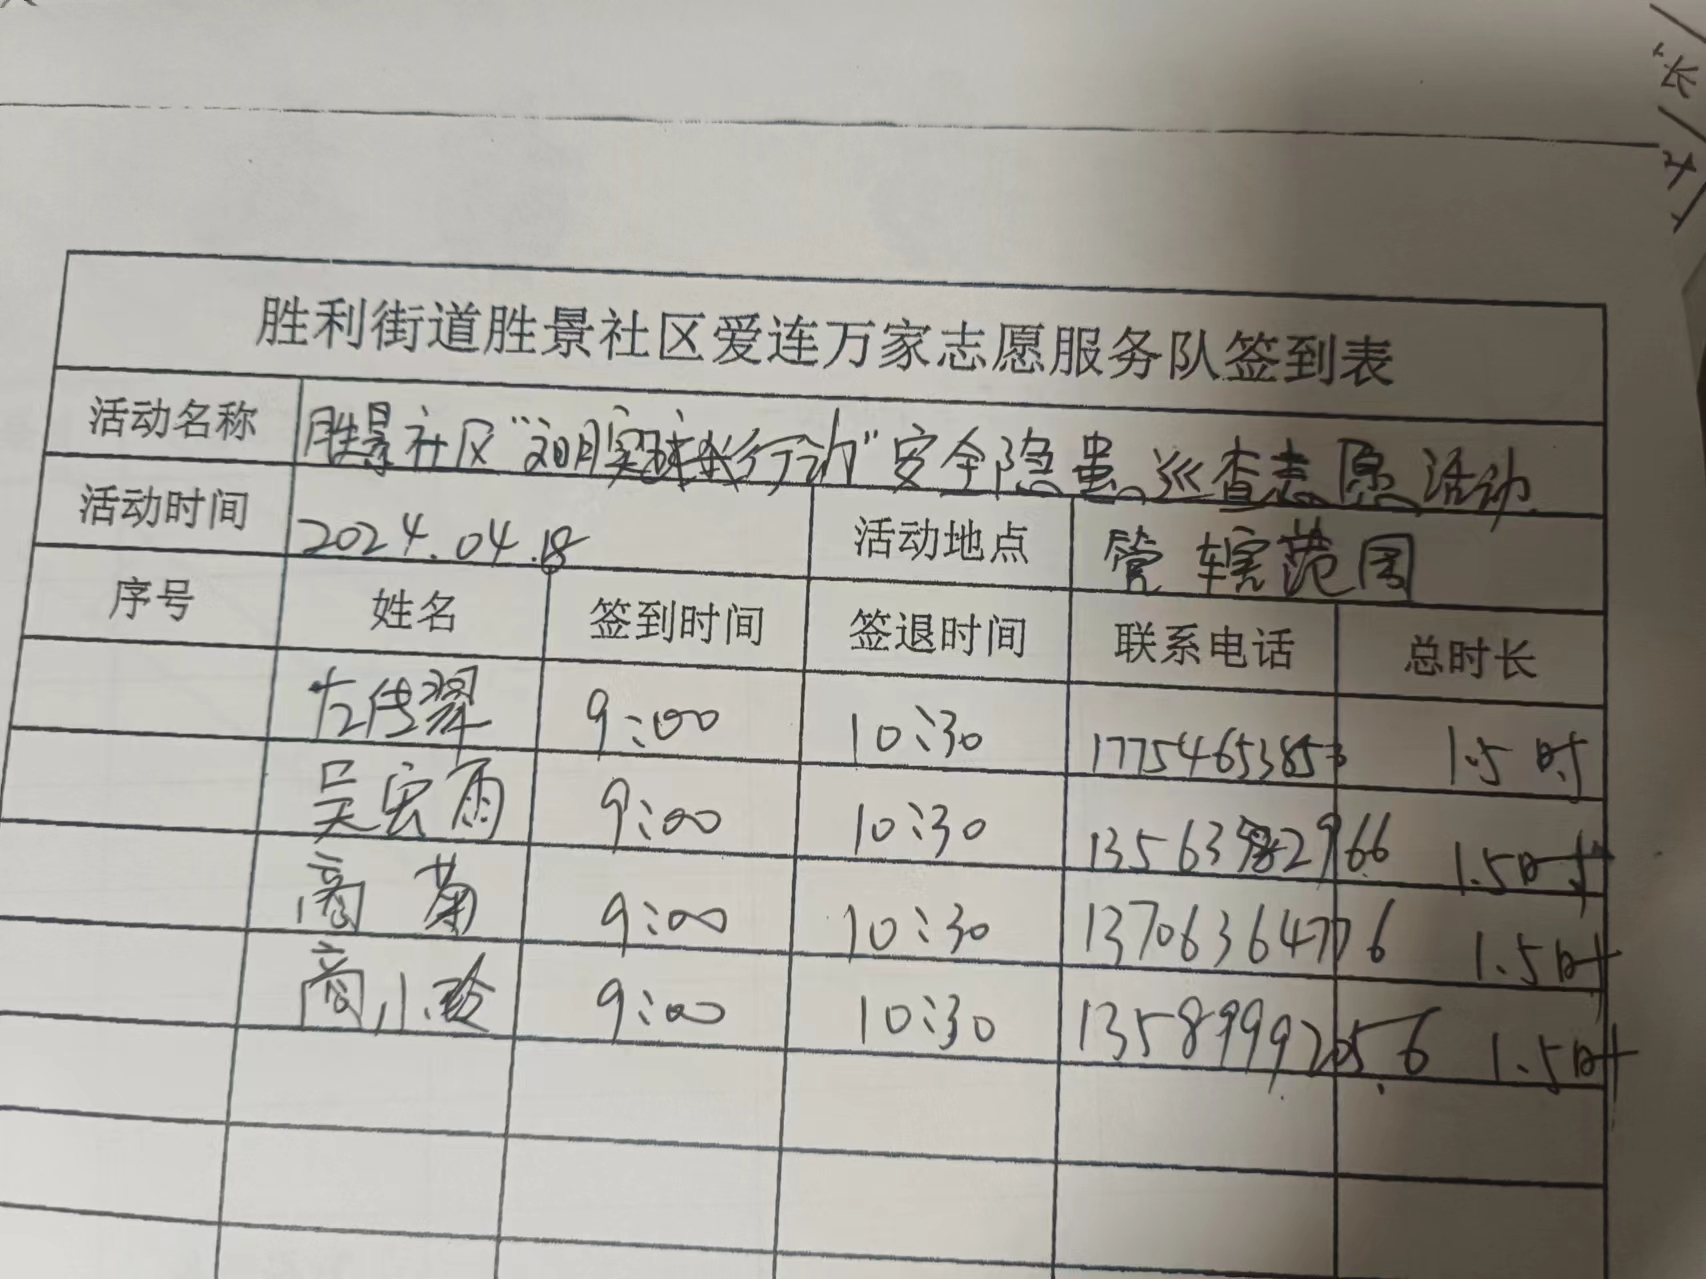 胜利街道胜景社区爱连万家志愿服务队签到表
活动名称 胜景社区“文明实践 行动”安全隐患巡查志愿活动
活动时间 2024.04.18 活动地点 管辖范围
序号 姓名 签到时间 签退时间 联系电话 总时长
左传翠 9:00 10:30 1775465385 1.5时
吴宏雨 9:00 10:30 1.5时
商菊 9:00 10:30 13706364776 1.5时
商小玲 9:00 10:30 13589992056 1.5时
长
时